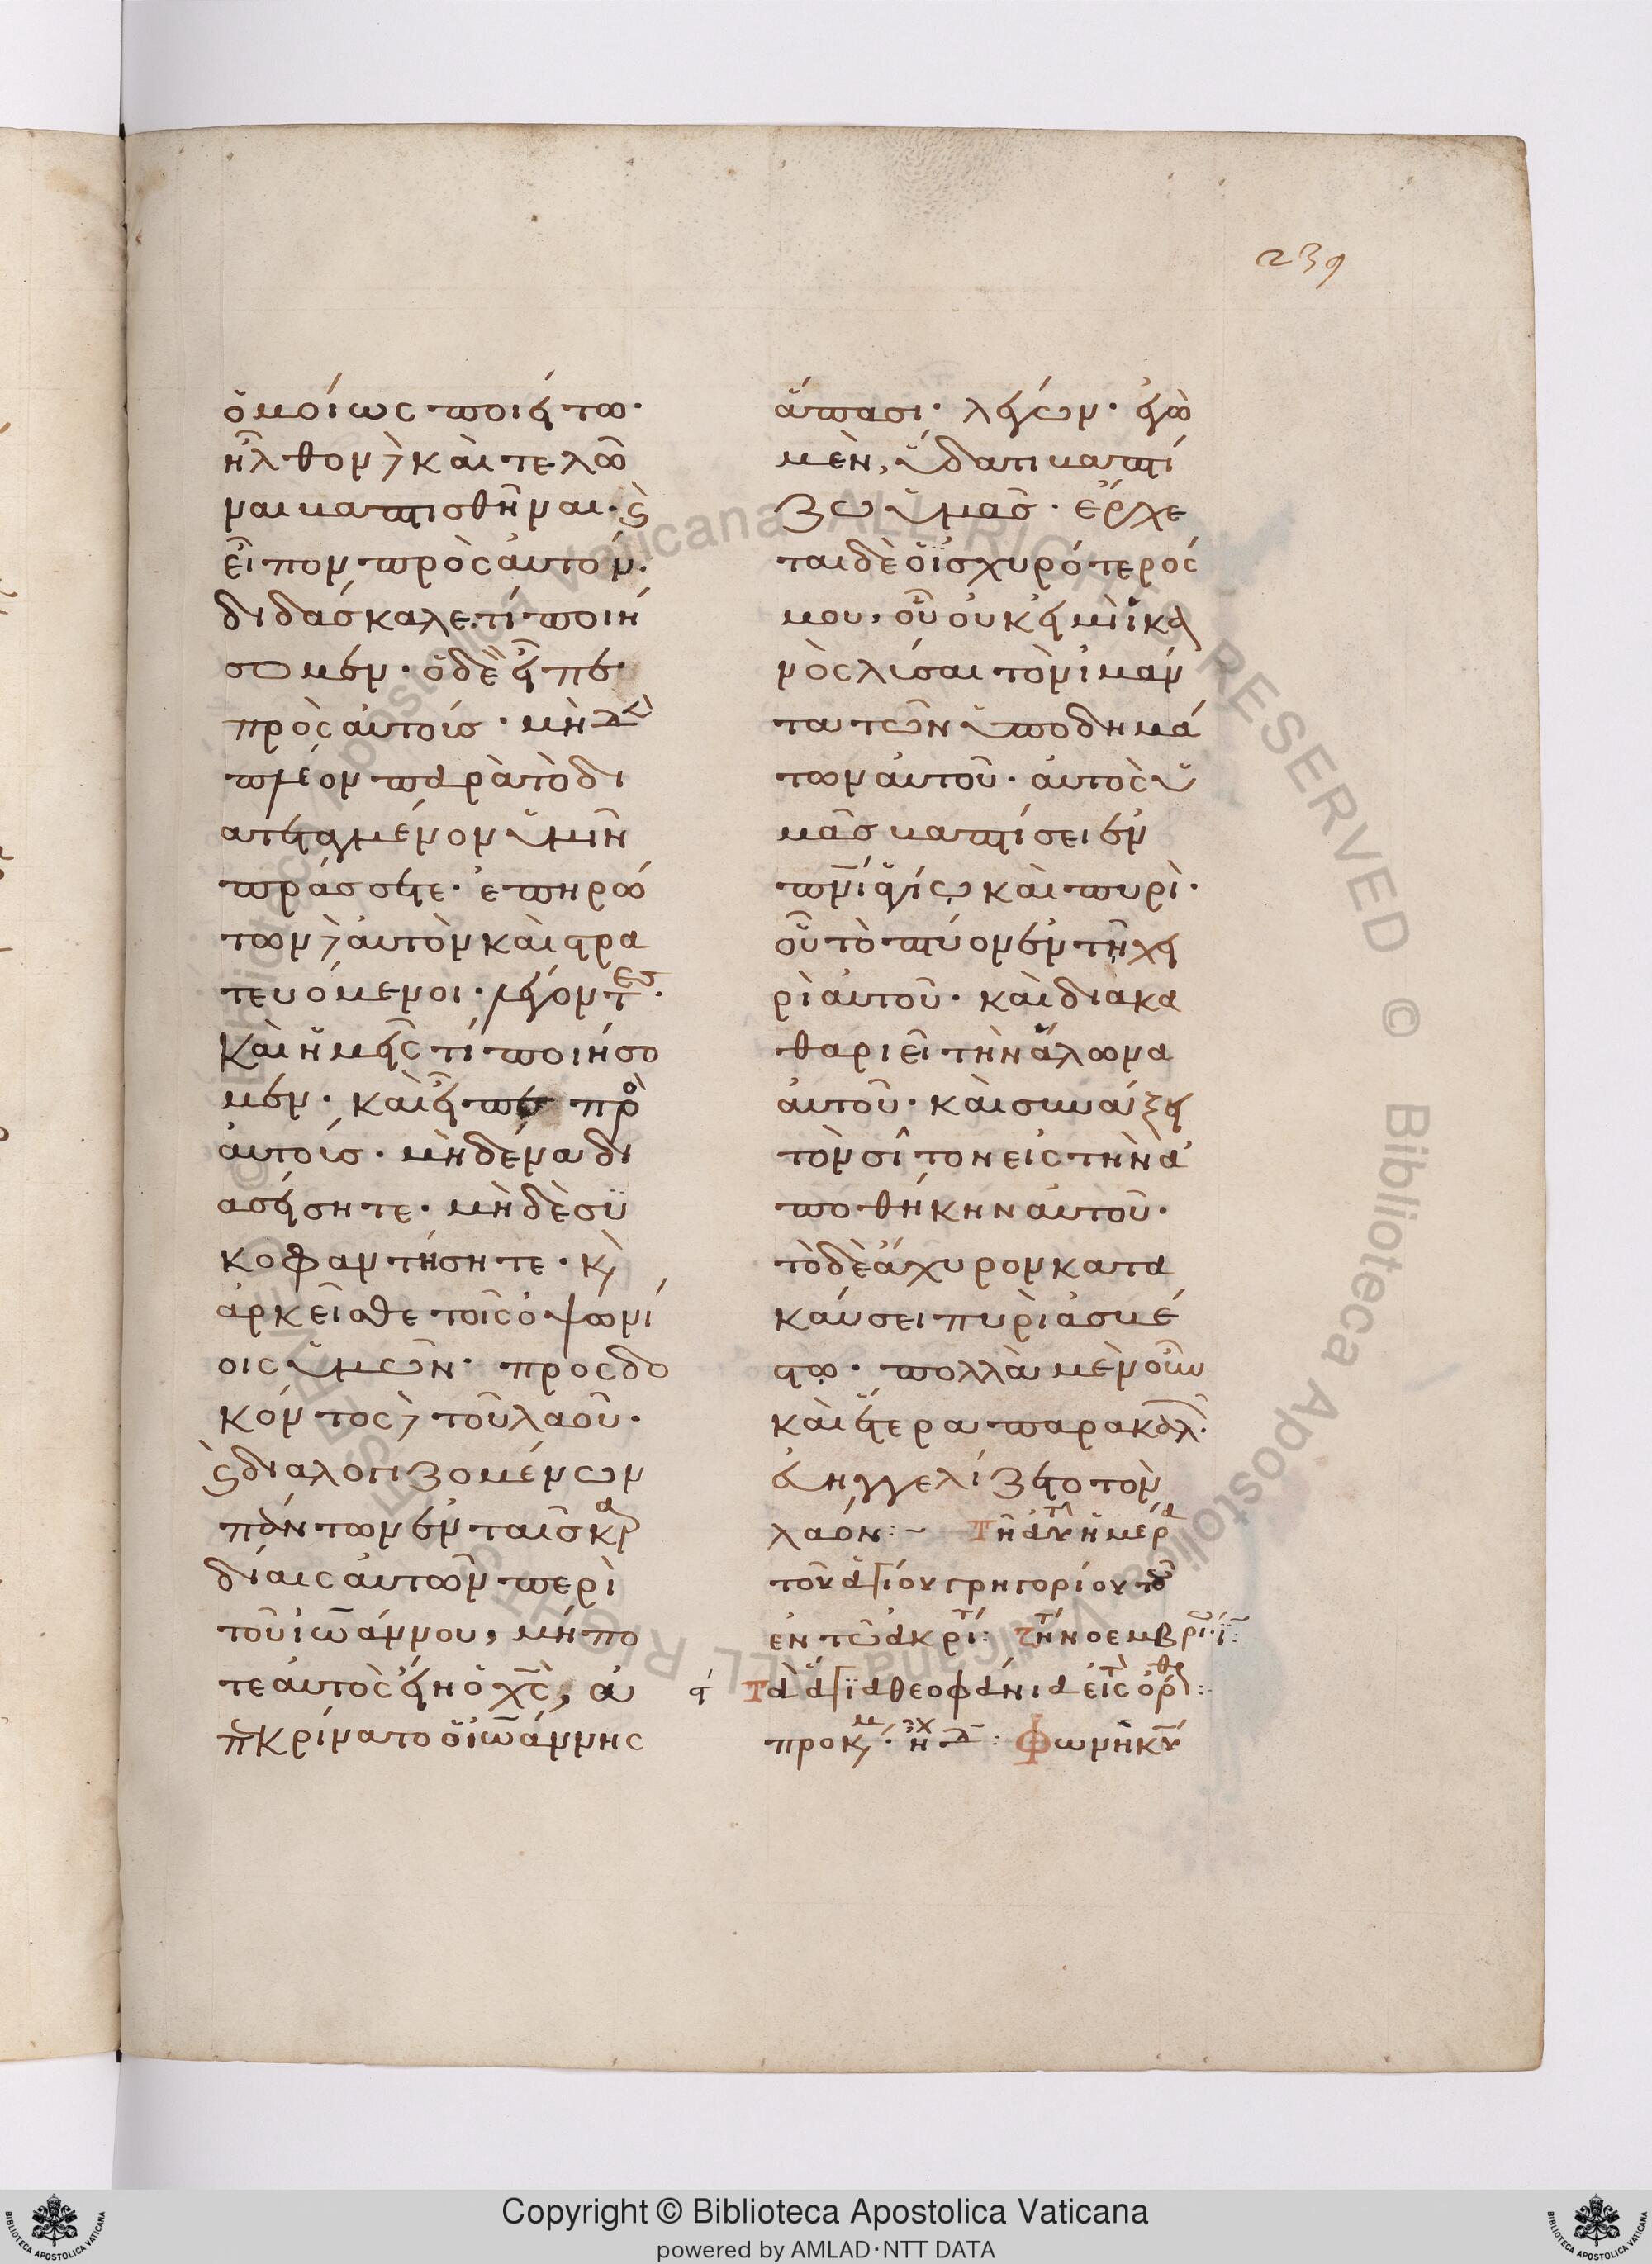 239
ὁμοίως ποιείτω·
ἦλθον δὲ καὶ τελῶ
ναι βαπτισθῆναι· ϗ
εἶπον πρὸς αὐτόν·
διδάσκαλε τί ποιή
σομεν· ὁ δὲ εἶπεν
πρὸς αὐτούς· μηδὲν
πλέον παρὰ τὸ δι
ατεταγμένον ὑμῖν
πράσσετε· ἐπηρώ
των δὲ αὐτὸν καὶ στρα
τευόμενοι· λέγοντες·
καὶ ἡμεῖς τί ποιήσο
μεν· καὶ εἶπεν πρὸ
αὐτούς· μηδένα δι
ασείσητε· μηδὲ συ
κοφαντήσητε· κὶ
ἀρκεῖσθε τοῖς ὀψωνί
οις ὑμῶν· προσδο
κόντος δὲ τοῦ λαοῦ·
ϗ διαλογιζομένων
πάντων ἐν ταῖς καρ
δίαις αὐτῶν περὶ
τοῦ ἰωάννου, μήπο
τε αὐτὸς εἴη ὁ χς, ἀ
πεκρίνατο ὁ ἰωάννης
ἅπασι· λέγων· ἐγὼ
μὲν, ὕδατι βαπτί
ζω ὑμᾶς· ἔρχε
ται δὲ ὁ ἰσχυρότερός
μου, οὗ οὐκ εἰμὶ ἱκα
νὸς λύσαι τὸν ἱμάν
τα τῶν ὑποδημά
των αὐτοῦ· αὐτὸς ὑ
μᾶς βαπτίσει ἐν
πνί ἁγίῳ καὶ πυρὶ·
οὗ τὸ πτύον ἐν τῇ χει
ρὶ αὐτοῦ· καὶ διακα
θαριεῖ τὴν ἅλωνα
αὐτοῦ· καὶ συνάξει
τὸν σῖτον εἰς τὴν ἀ
ποθήκην αὐτοῦ·
τὸ δὲ ἄχυρον κατα
καύσει πυρὶ ἀσβέ
στῳ· πολλὰ μὲν οὖν
καὶ ἕτερα παρακαλ·
εὐηγγελίζετο τὸν
λαόν:~ Τῇ ἀυτ ἡμέρα
τοῦ ἁγίου γρηγορίου τοῦ
ἐν τῶ ἀκρί: ζητ νοεμβρί· ι:
Τὰ ἅγια θεοφάνια εἰς τ ὀρθ:
προκμ· ἦχ δ: Φωνὴ κυ